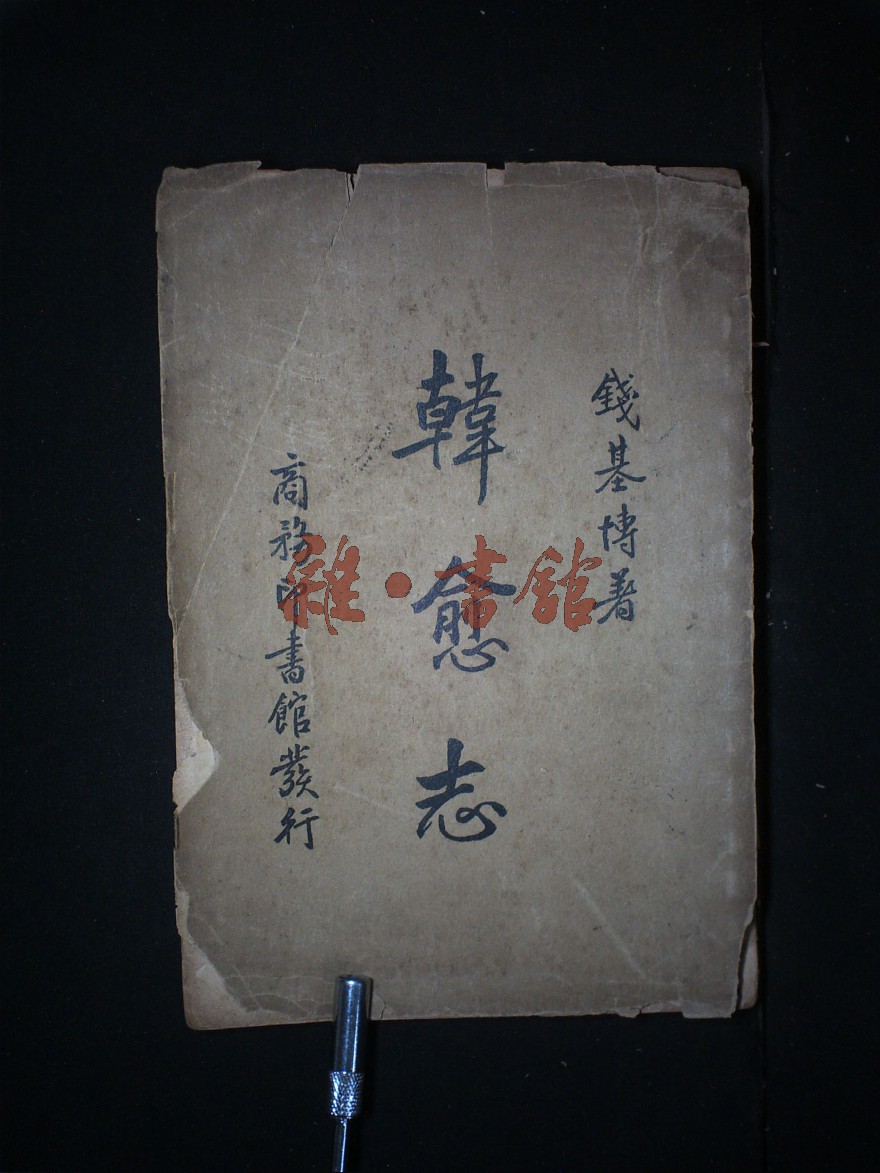 錢基博著
韓愈志
商務印書館發行
雜·書館